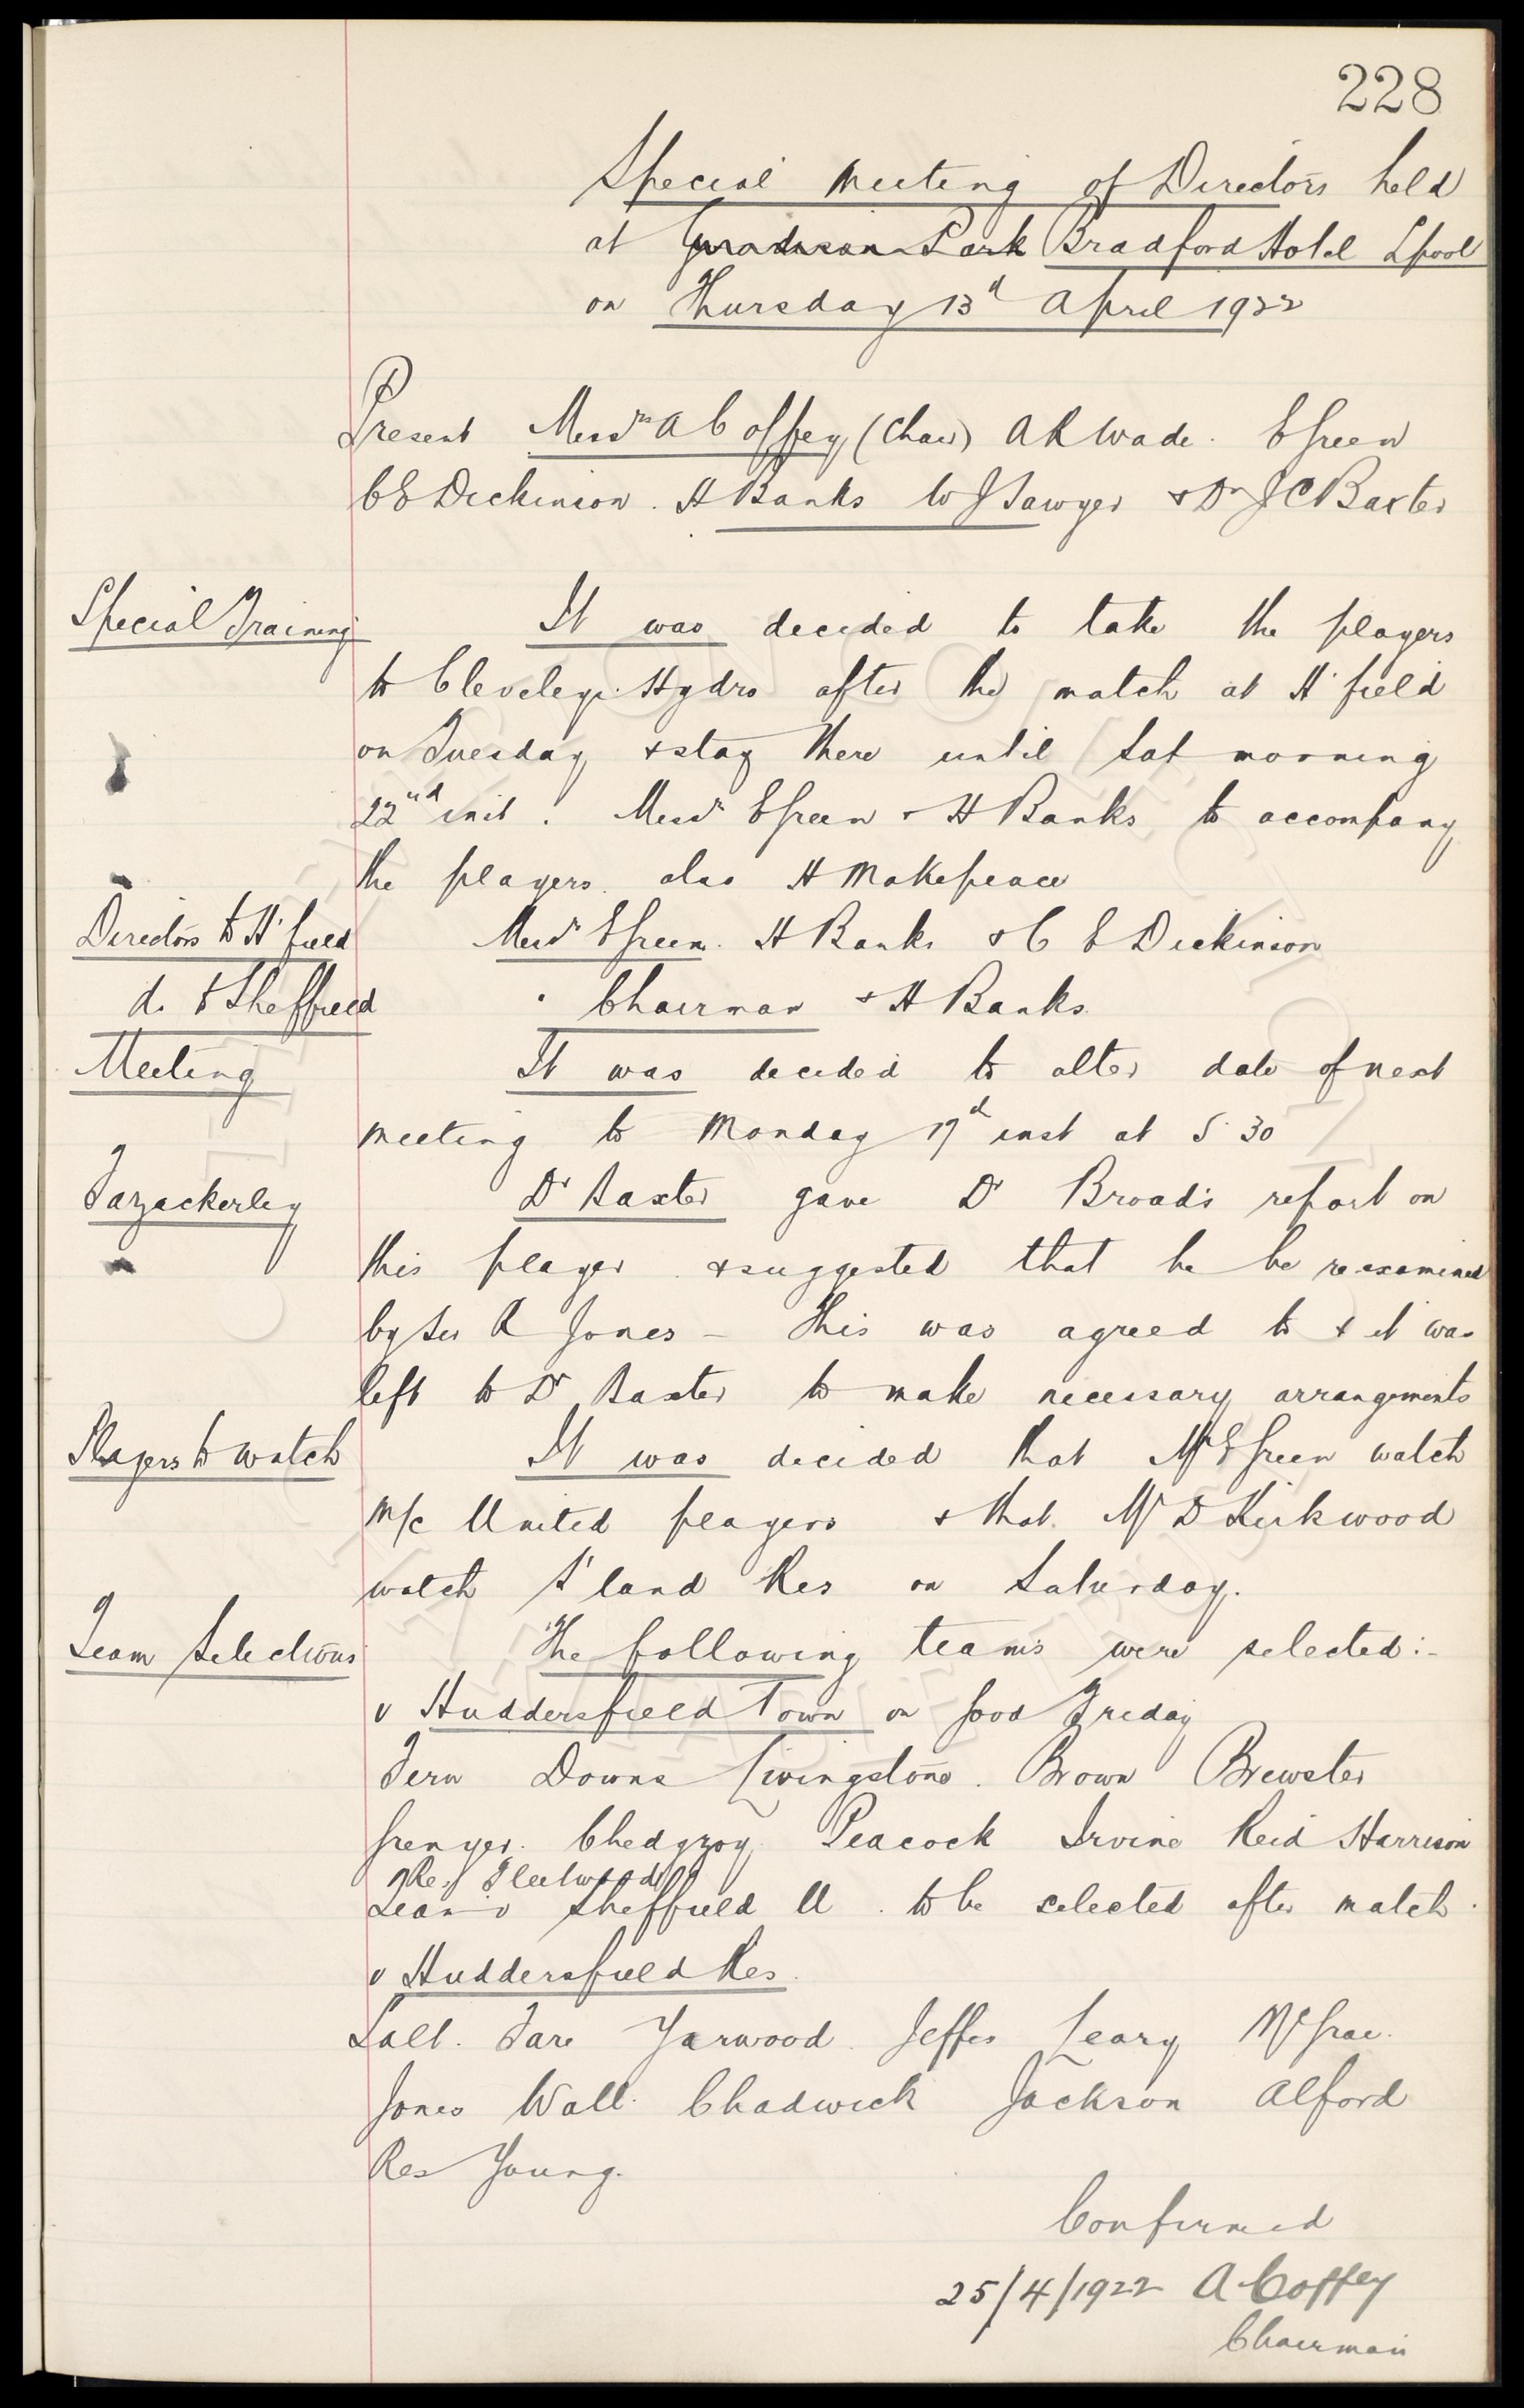 228
Special Meeting of Directors held
at Goodison Park Bradford Hotel Lpool
on Thursday 13th April 1922
Present Messrs A Coffey (Chair) A R Wade. E Green
C E Dickinson. H Banks W J Sawyer & Dr J C Baxter
Special Training
It was decided to take the players
to Cleveleys Hydro after the match at H'field
on Tuesday & stay there until Sat morning
22nd inst. Messrs E Green & H Banks to accompany
the players. also H Makepeace
Directors to H'field Messrs E Green. H Banks & C E Dickinson
do to Sheffield " Chairman & H Banks.
Meeting
It was decided to alter date of next
meeting to Monday 17th inst at 5.30
Fazackerley
Dr Baxter gave Dr Broad's report on
this player & suggested that he be re-examined
by Sir R Jones - This was agreed to & it was
left to Dr Baxter to make necessary arrangements
Players to watch
It was decided that Mr E Green watch
M/c United players & that Mr D Kirkwood
watch S'land Res on Saturday.
Team Selections
The following teams were selected:-
v Huddersfield Town on Good Friday
Fern Downs Livingstone. Brown Brewster
Grenyer. Chedgzoy. Peacock Irvine Reid Harrison
Res Fleetwood
Team v Sheffield U. to be selected after match.
v Huddersfield Res.
Salt. Tare Yarwood. Jeffes Leary McGrae.
Jones Wall. Chadwick Jackson Alford
Res Young.
Confirmed
25/4/1922 A Coffey
Chairman